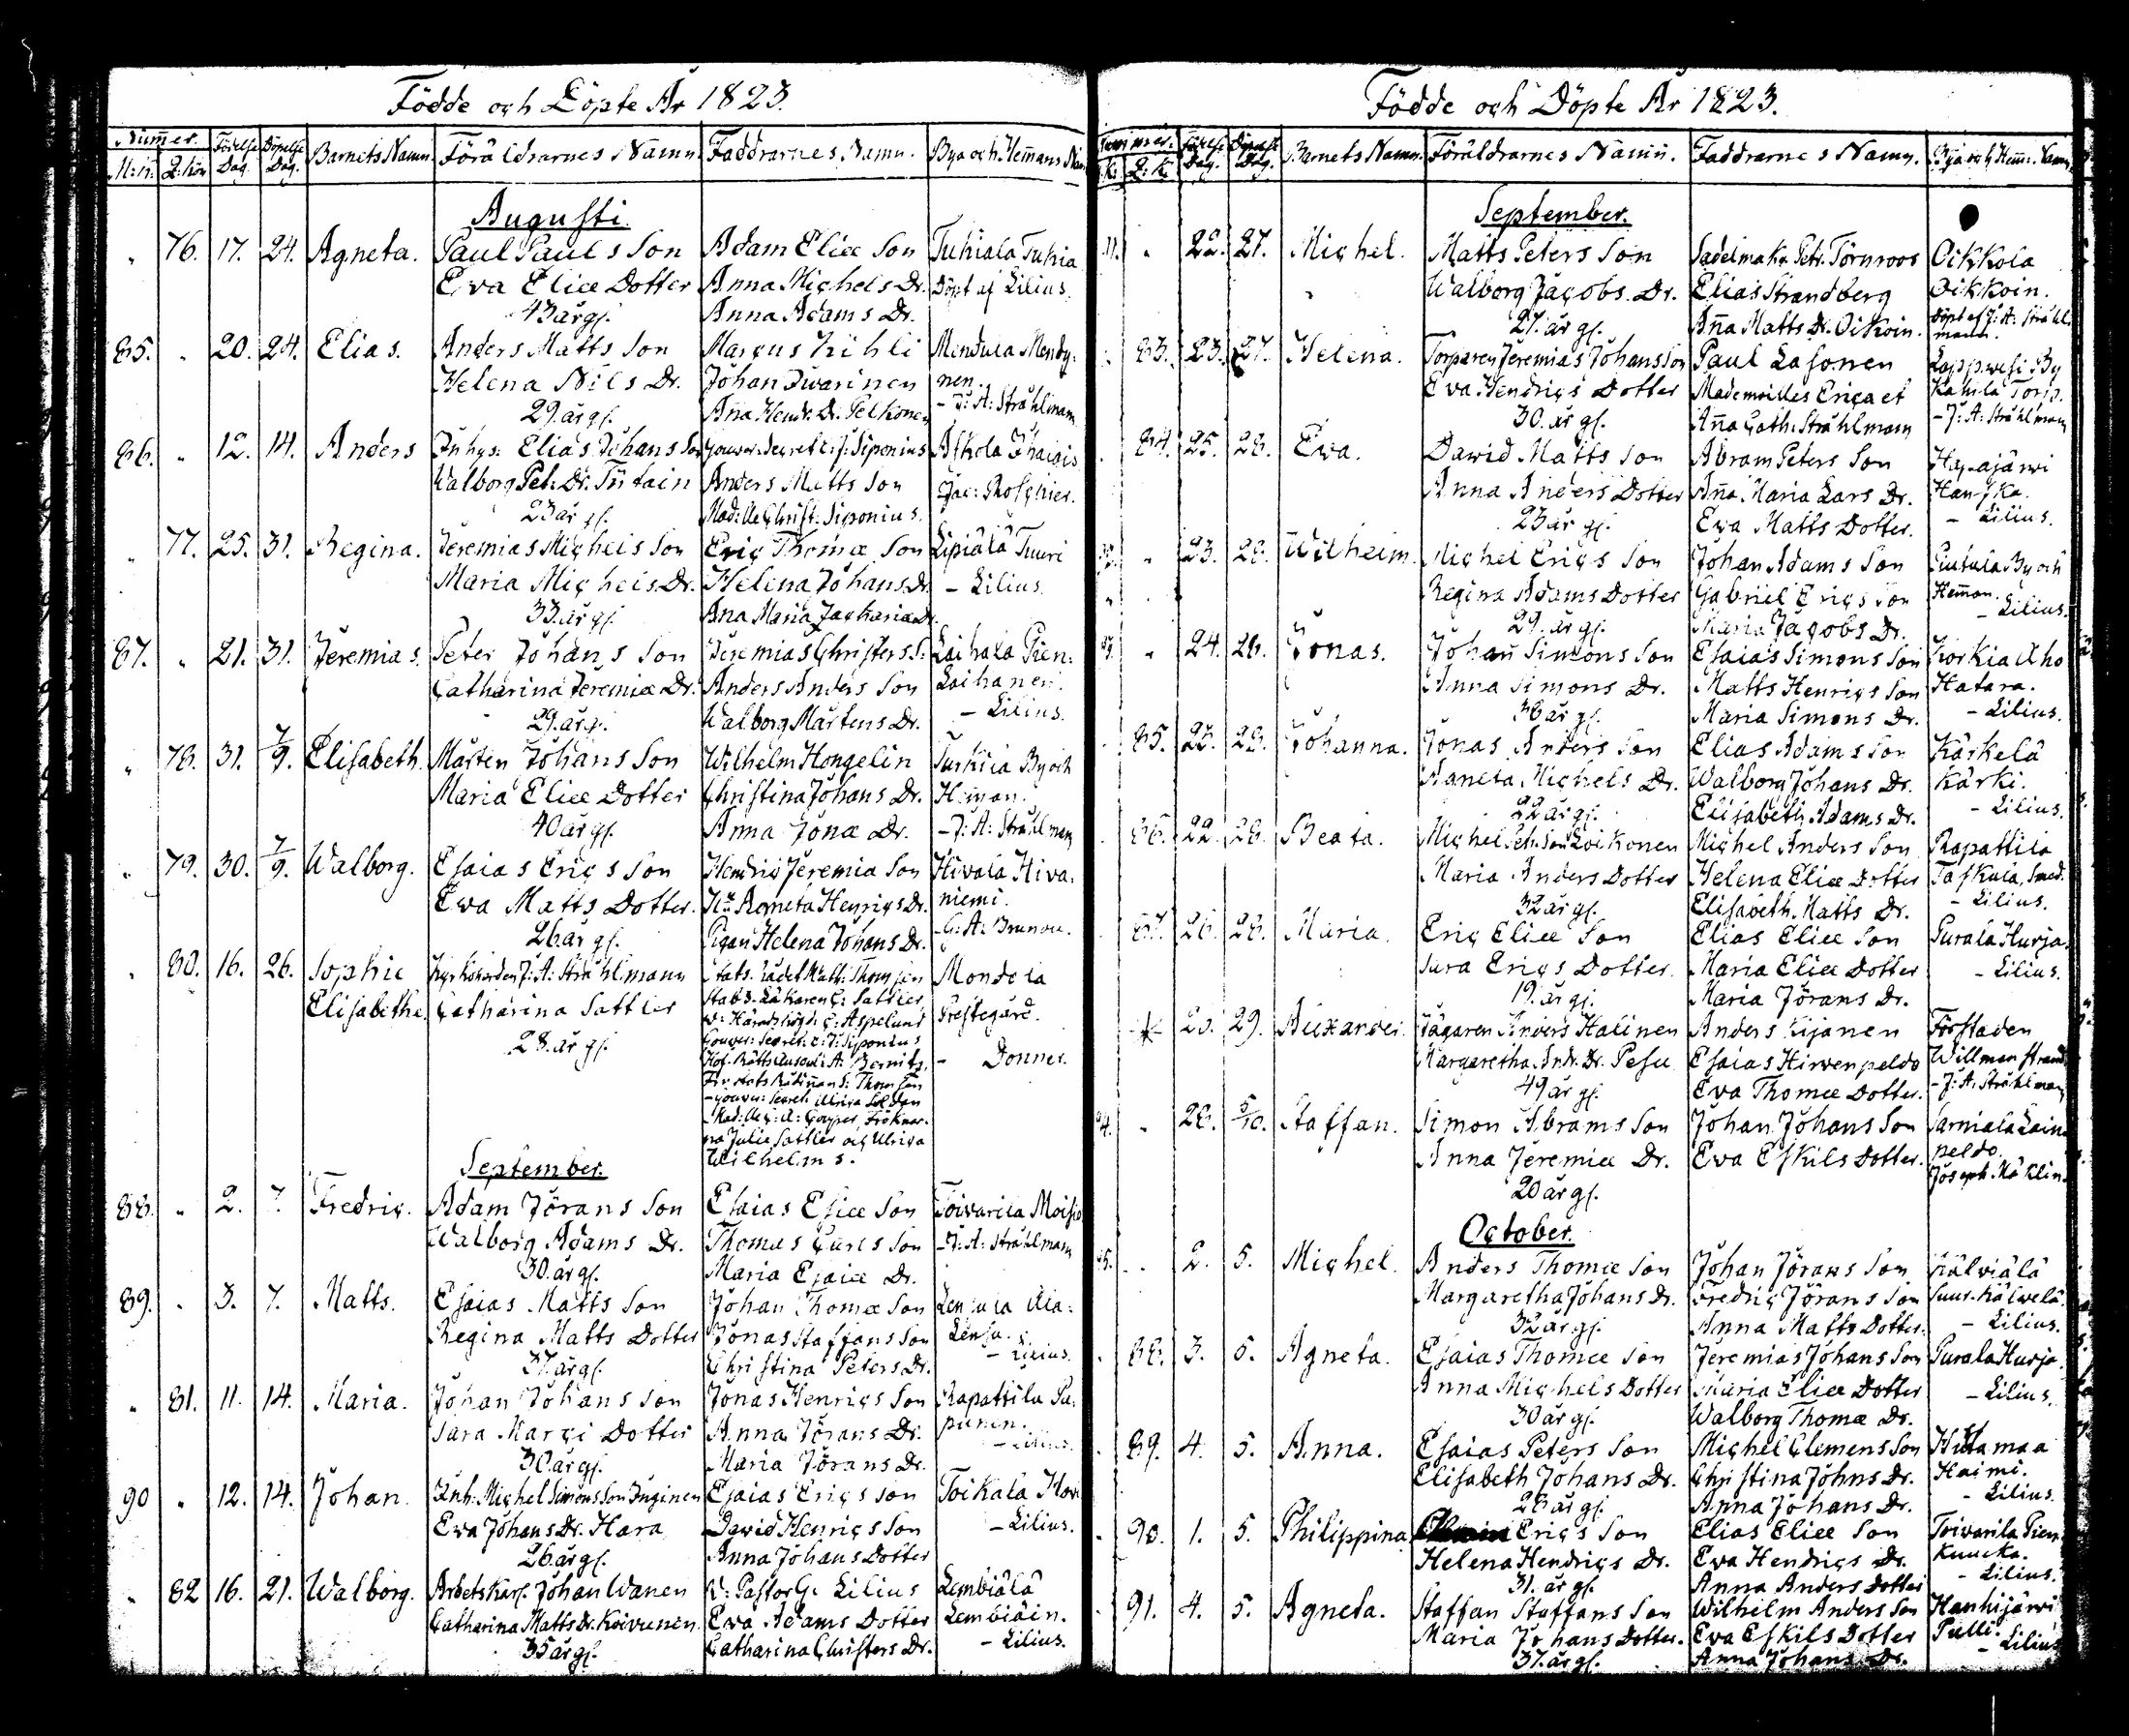 Födde och Döpte År 1823.
Nummer. Födelse Dag. Döpelse Dag. Barnets Namn Föräldrarnes Namn Faddrarnes Namn. Bya och Hemans Nam
M:kn. Q:kön
Augusti.
76. 17. 24. Agneta. Paul Pauls Son Adam Eliæ Son Tuhiala Tuhia
Eva Eliæ Dotter Anna Michels Dr. Döpt af Lilius.
43 år gl. Anna Adams Dr.
85. 20. 24. Elias. Anders Matts Son Marcus Kihli Mendula Mendy:
Helena Nils Dr. Johan Iwarinen nen.
29. år gl. Aña Hendr. Dr. Pelkonen - J: A: Stråhlmann
86. 12. 14. Anders Inhys: Elias Johans Son Gouver: Secret: Siponius Askola
Walborg Pet: Dr. Anders Matts Son
23 år gl. Mad:lle Christ: Siponius.
77. 25. 31. Regina. Jeremias Michels Son Eric Thomæ Son Lipiälä Tuuri
Maria Michels Dr. Helena Johans Dr. - Lilius.
33. år gl. Ana Maria Zacharia Dr.
87. 21. 31. Jeremias. Peter Johans Son Jeremias Christers S: Laihala Pien:
Catharina Jeremiæ Dr. Anders Anders Son Laihanen.
29. år gl. Walborg Mårtens Dr. - Lilius.
78. 31. 7/9. Elisabeth. Mårten Johans Son Wilhelm Hongelin Turkiia By och
Maria Eliæ Dotter Christina Johans Dr. Heman.
40 år gl. Anna Jonæ Dr. - J: A: Stråhlman
79. 30. 7/9. Walborg. Esaias Erics Son Hendric Jeremiæ Son Hivala Hiva:
Eva Matts Dotter. Agneta Henrics Dr. niemi.
26 år gl. Pigan Helena Johans Dr.
80. 16. 26. Sophie Kyrkoherden J: A: Stråhlmann Stats. Rådet Matth: Thomson Mondola
Elisabethe. Catharina Sattler Stabs. Läkaren C: Sattler Prestegård.
28. år gl. v: Häradshöfd: C: Aspelund
Gouver: Secret: Siponius
- Donner.
Wilhelms.
September.
88. 2. 7. Fredric. Adam Jörans Son Esaias Esiæ Son Toivarila Moisio
Walborg Adams Dr. Thomas Carls Son - J: A: Stråhlmann
30. år gl. Maria Esaiæ Dr.
89. 3. 7. Matts. Esaias Matts Son Johan Thomæ Son Lensula Ala:
Regina Matts Dotter Jonas Staffans Son Lensu.
37. år gl. Christina Peters Dr. - Lilius.
81. 11. 14. Maria. Johan Johans Son Jonas Henrics Son Rapattila Pa:
Sara Marci Dotter Anna Jörans Dr. punen.
30. år gl. Maria Jörans Dr. - Lilius.
90 12. 14. Johan. Inh: Michel Simons Son Inginen Esaias Erics Son Toikala
Eva Johans Dr. Hara David Henrics Son - Lilius.
26. år gl. Anna Johans Dotter
82 16. 21. Walborg. Arbets Karl. Johan Wanen V: Pastor G: Lilius Lembiälä
Catharina Matts Dr. Koivunen Eva Adams Dotter Lembiäin.
35 år gl. Catharina Christers Dr. - Lilius.
Födde och Döpte År 1823.
Nummer. Födelse Dag. Döpelse Dag. Barnets Namn. Föräldrarnes Namn. Faddrarnes Namn. Bya och Hem: Namn
K: Q:k:
September.
22. 27. Michel. Matts Peters Son Sadelmak: Petr. Törnroos Oikkola
Walborg Jacobs Dr. Elias Strandberg Oikkoin.
27. år gl. Aña Matts Dr. Oikoin. Döpt af J: A: Stråhl:
mann.
83. 23. 27. Helena. Torparen Jeremias Johans Son Paul Lasonen Lappvesi By
Eva Hendrics Dotter Mademoilles Erica et Kahila Torp.
30. år gl. Aña Cath: Stråhlmann - J: A: Stråhlmann
84. 25. 28. Eva. Dawid Matts Son Abram Peters Son Hapajärvi
Anna Anders Dotter Aña Maria Lars Dr. Hanska.
23 år gl. Eva Matts Dotter. - Lilius.
23. 28. Wilhelm. Michel Erics Son Johan Adams Son By och
Regina Adams Dotter Gabriel Erics Son Heman.
29. år gl. Maria Jacobs Dr. - Lilius.
24. 28. Jonas. Johan Simons Son Esaias Simons Son
Anna Simons Dr. Matts Henrics Son Hatara.
36 år gl. Maria Simons Dr. - Lilius.
85. 28. Johanna. Jonas Anders Son Elias Adams Son Kärkelä
Michels Dr. Walborg Johans Dr. Kärki.
22 år gl. Elisabeth Adams Dr. - Lilius.
86. 22. 28. Beata. Michel Petr: Son Loikonen Michel Anders Son Rapattila
Maria Anders Dotter Helena Eliæ Dotter Taskula, Smed.
32 år gl. Elisabeth Matts Dr. - Lilius.
87. 26. 28. Maria. Eric Eliæ Son Elias Eliæ Son Purala Hurja.
Sara Erics Dotter. Maria Eliæ Dotter - Lilius.
19. år gl. Maria Jörans Dr.
29. Alexander. Jägaren Anders Halinen Anders Kijanen Förstaden
Margaretha Andr. Dr. Pesu Esaias Hirvenpeldo Willmanstrand
49 år gl. Eva Thomæ Dotter. - J: A: Stråhlmann
28. 5/10. Staffan. Simon Abrams Son Johan Johans Son Sarniala Lain:
Anna Jeremiæ Dr. Eva Eskils Dotter. peldo.
20 år gl. Joseph
October.
2. 5. Michel. Anders Thomæ Son Johan Jörans Son Kälviälä
Margaretha Johans Dr. Fredric Jörans Son Suur-Kälvelä.
32 år gl. Anna Matts Dotter. - Lilius.
88. 3. 5. Agneta. Esaias Thomæ Son Jeremias Johans Son Purala Hurja.
Anna Michels Dotter Maria Eliæ Dotter - Lilius.
30 år gl. Walborg Thomæ Dr.
89. 4. 5. Anna. Esaias Peters Son Michel Clemens Son Huttamaa
Elisabeth Johans Dr. Christina Johns Dr. Haimi.
28 år gl. Anna Johans Dr. - Lilius.
90. 1. 5. Philippina Erics Son Elias Eliæ Son Toivarila Pien:
Helena Hendrics Dr. Eva Hendrics Dr. Kuucka.
31. år gl. Anna Anders Dotter - Lilius.
91. 4. 5. Agneta. Staffan Staffans Son Wilhelm Anders Son Hanhijärvi
Maria Johans Dotter. Eva Eskils Dotter Pulli.
37. år gl. Anna Johans Dr. - Lilius